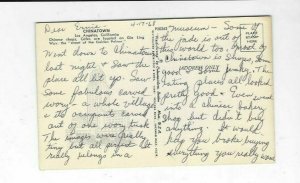 Dear Ernie
4-17-68
CHINATOWN
Los Angeles, California
Chinese shops, Cafes, are located on Gin Ling
Way, the "street of the Golden
Went down to Chinatown
last night & saw the
place all lit up. Saw
some fabulous carved
ivory - a whole village
& its occupants carved
out of one ivory tusk
The images were really
tiny but all perfect. It
really belongs in a
Museum - Some of
the jade is out of
this world too. Most of
Chinatown is Shops, some
good - Some junky.
The eating places looked
pretty good - Even went
into a chinese bakery
Shop but didn't buy
anything. It would
keep you broke buying
everything you really want
POST CARD
PLACE
STAMP
HERE